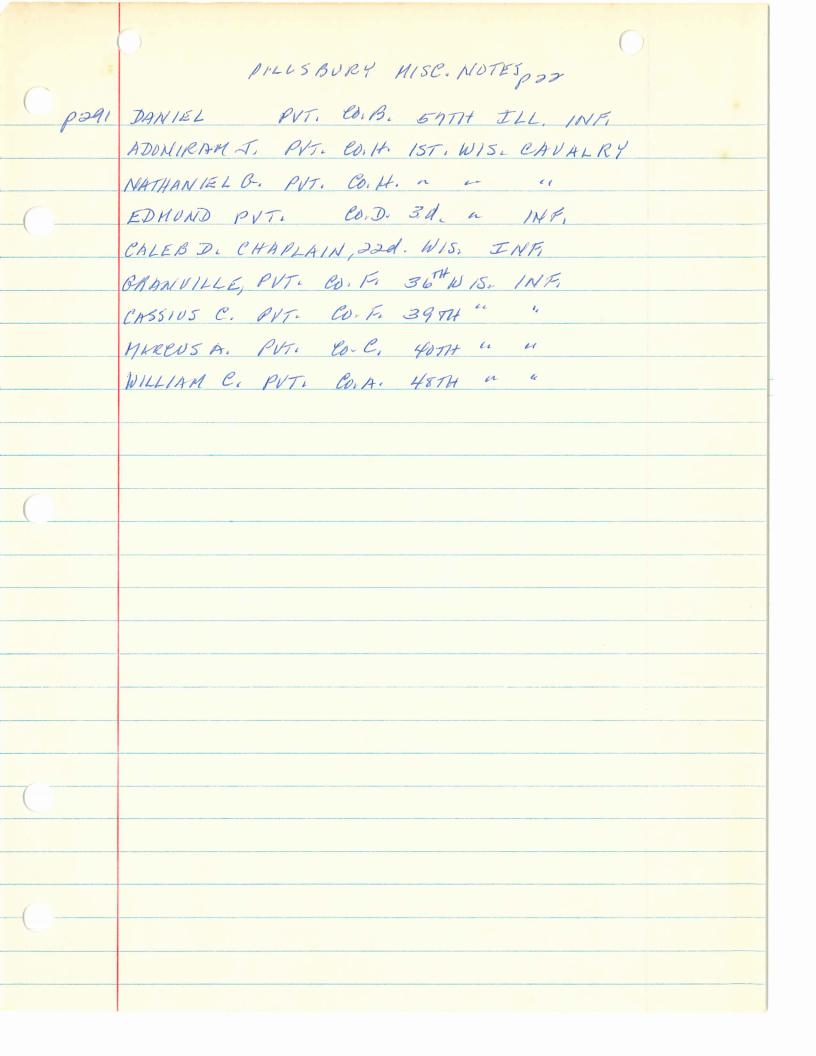 PILLSBURY MISC. NOTES p22
p291 DANIEL PVT. CO.B. 57TH ILL. INF.
ADONIRAM J. PVT. CO.H. 1ST. WIS. CAVALRY
NATHANIEL G. PVT. CO.H. " " "
EDMUND PVT. CO.D. 3d. " INF.
CALEB D. CHAPLAIN, 22d. WIS. INF.
GRANVILLE, PVT. CO. F. 36TH WIS. INF.
CASSIUS C. PVT. CO-F. 39TH " "
MARCUS A. PVT. CO-C. 40TH " "
WILLIAM C. PVT. CO.A. 48TH " "